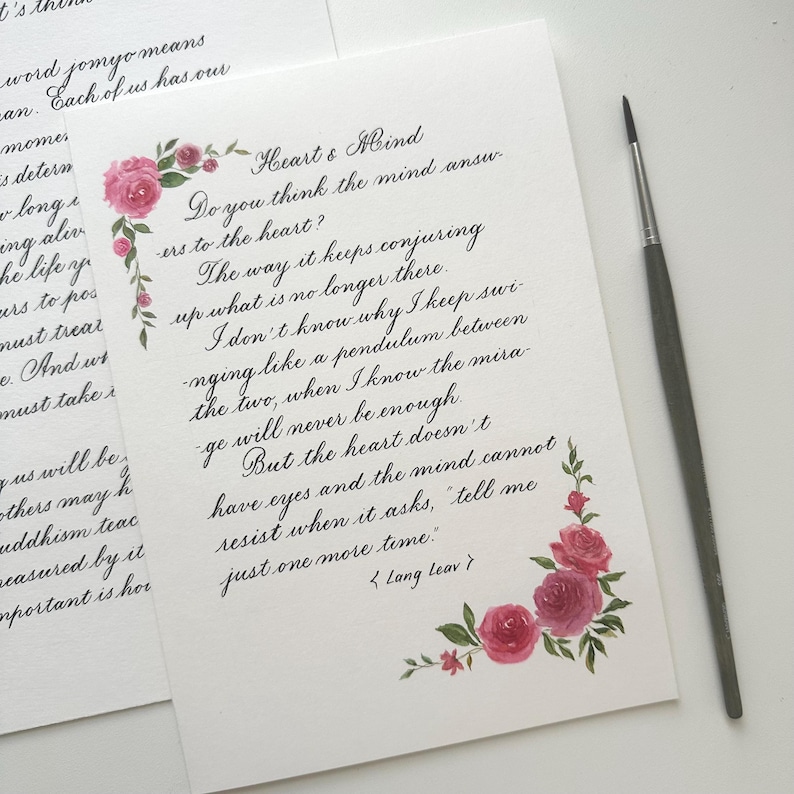 t's think
word jomyo means
an. Each of us has our
momen
is determ
w long i
ing aliv
he life y
urs to pos
must treat
e. And wh
must take i
g us will be
others may h
uddhism teac
easured by it
mportant is ho
Heart & Mind
Do you think the mind answ-
-ers to the heart?
The way it keeps conjuring
up what is no longer there.
I don't know why I keep swi-
-nging like a pendulum between
the two, when I know the mira-
-ge will never be enough.
But the heart doesn't
have eyes and the mind cannot
resist when it asks, "tell me
just one more time."
< Lang Leav >